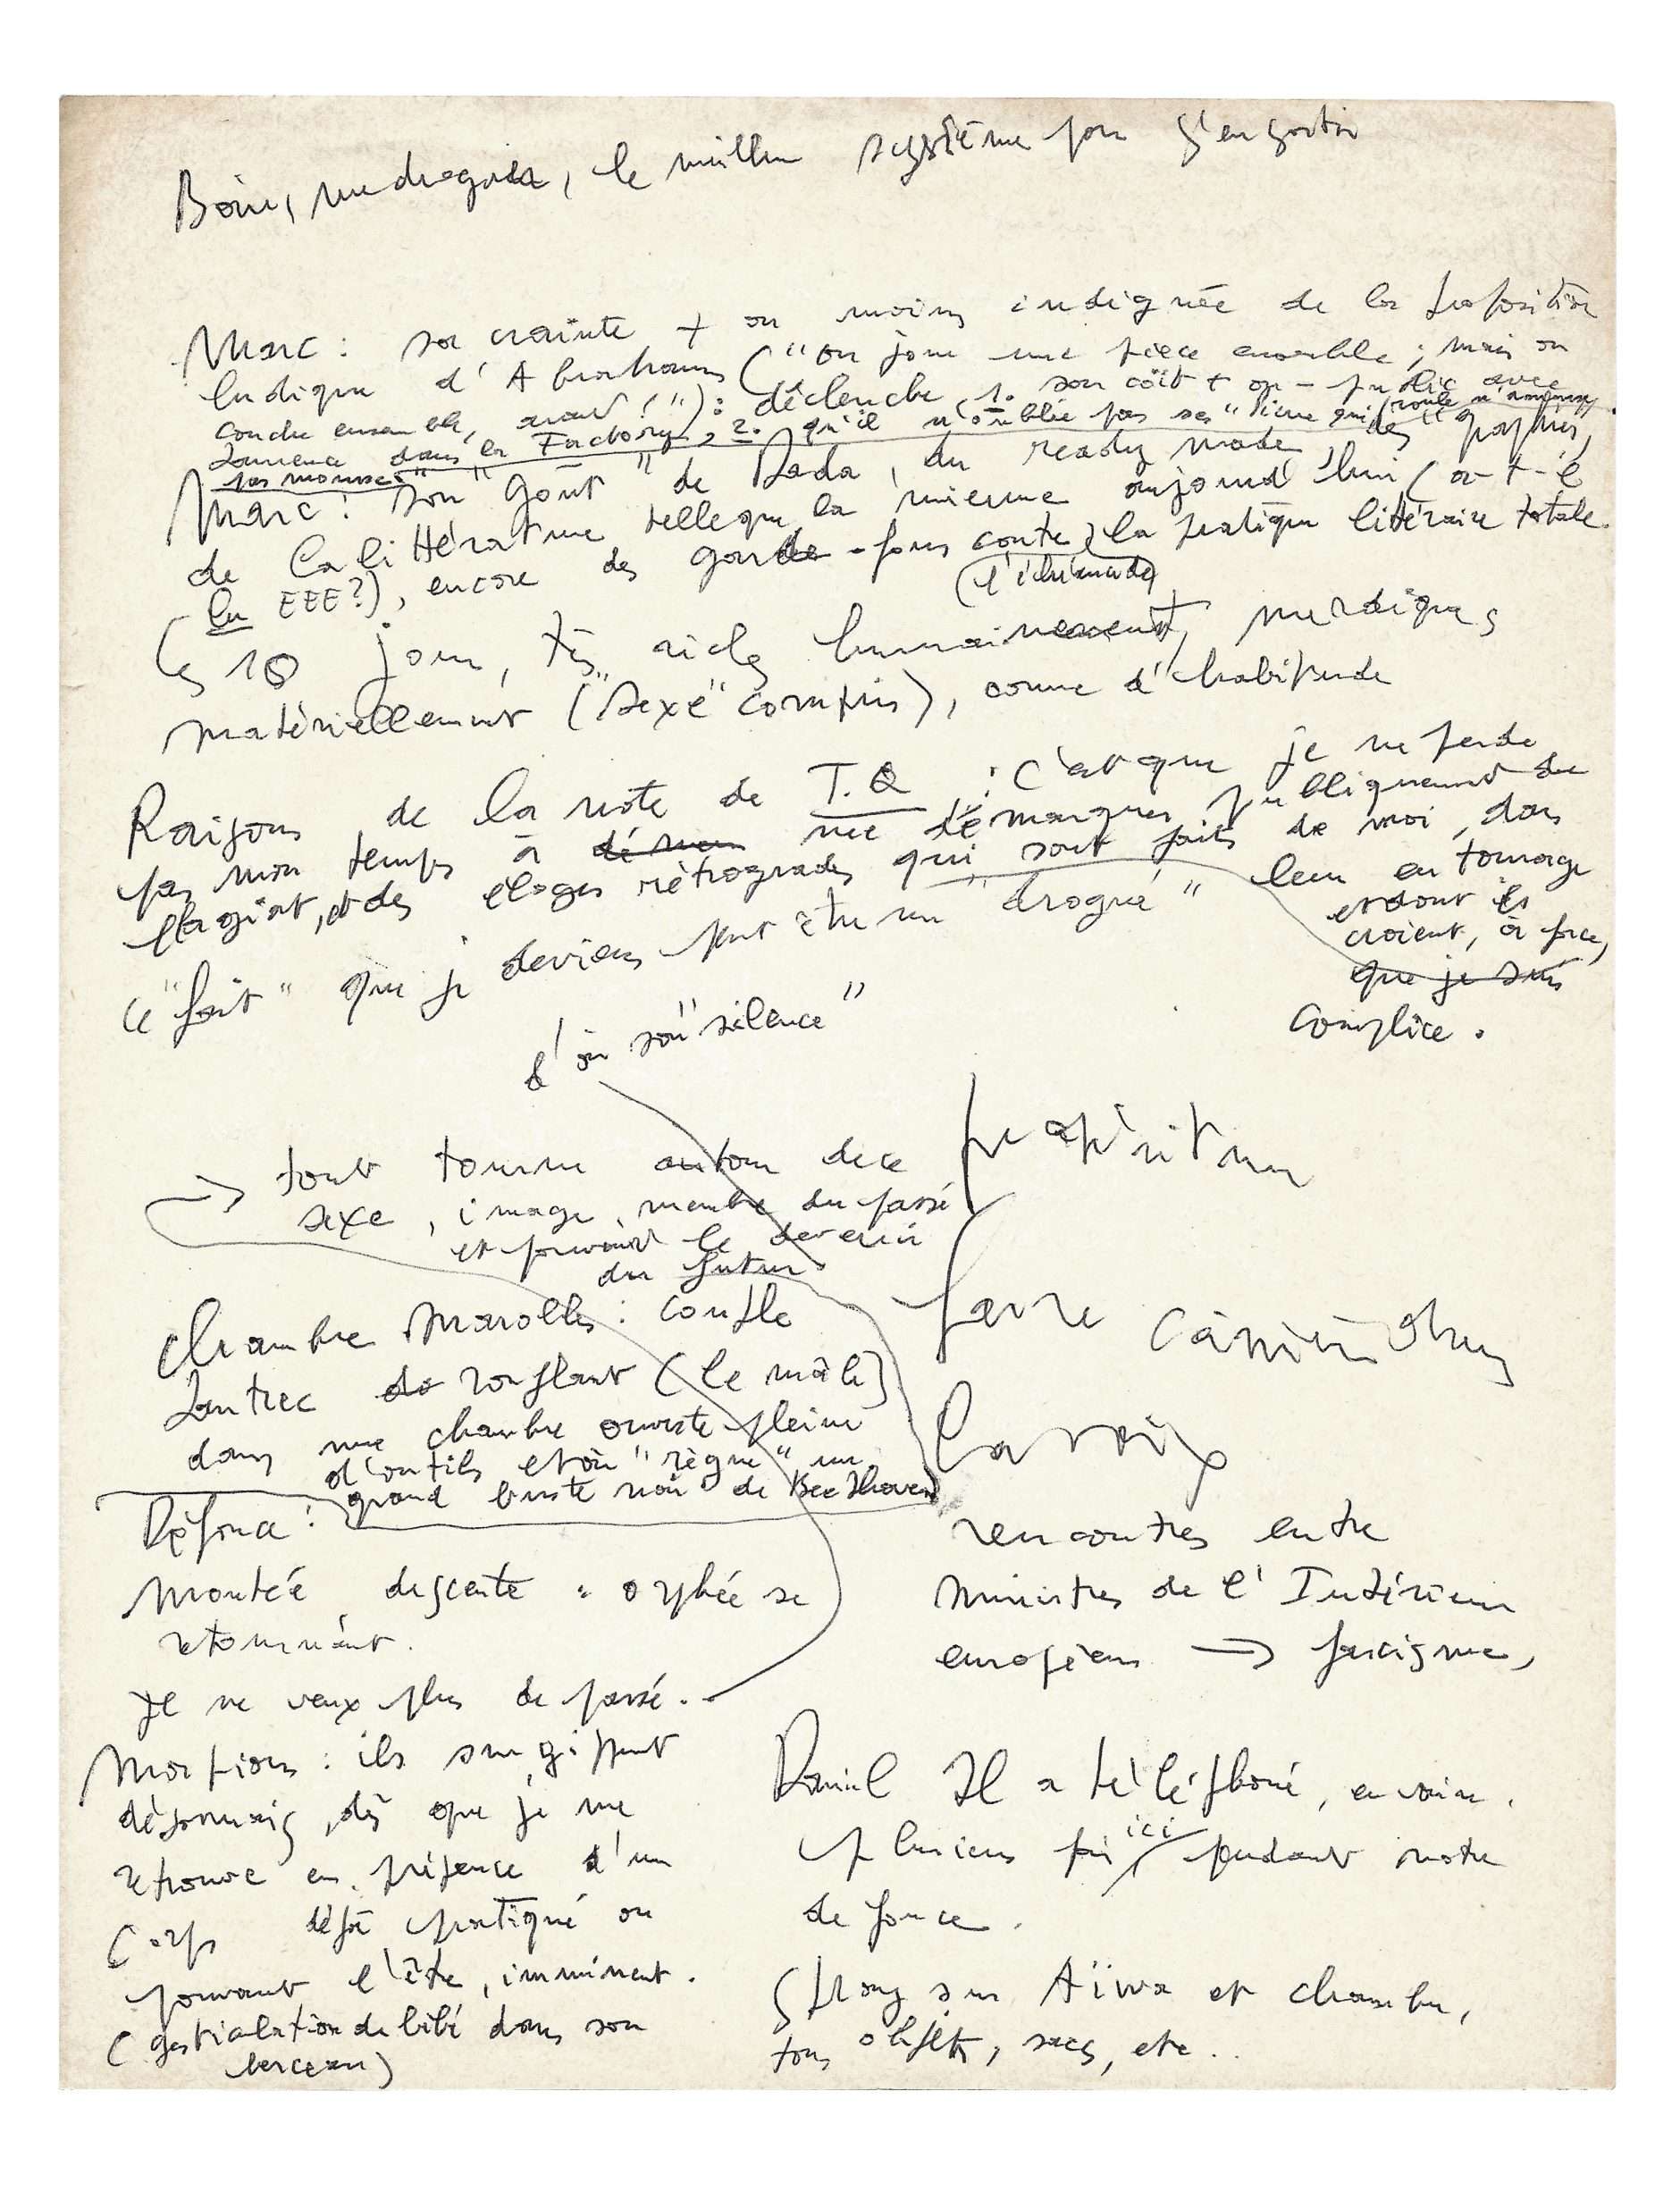 Boire, me droguer, le meilleur système pour s'en sortir
Marc : sa crainte + ou moins indignée de la proposition
ludique d'Abrahams ("on joue une pièce ensemble ; mais on
couche ensemble, avant !") : déclenche 1. son coït + ou - public avec
Laurence dans la Factory, 2. qu'il n'oublie pas ses "Pierre qui roule n'amasse
pas mousse"
Marc : son "goût" de Dada, du ready made, des graphies,
de la littérature telle que la mienne aujourd'hui (a-t-il
lu EEE?), encore des garde-fous contre la pratique littéraire totale.
(l'écriture de)
Les 10 jours, très riches humainement, merdiques
matériellement ("sexe" compris), comme d'habitude
Raisons de la note de T.Q : c'est que je ne perde
pas mon temps à me démarquer publiquement du
plagiat, et des éloges rétrogrades qui sont faits de moi, dans
leur entourage
et dont ils
croient, à force,
que je suis
complice.
Ce "fait" que je deviens peut être un "drogué"
d'où son "silence"
→ tout tourne autour de ce
sexe, image, membre du passé
et pouvant le devenir
du futur
préapéritum
faire
la voix
Chambre Marolles : couple
Lautrec ronflant (le mâle)
dans une chambre ouverte pleine
d'outils et où "règne" un
grand buste noir de Beethoven
Défonce :
Montée descente = orphée se
retournant.
Je ne veux plus de passé.
rencontres entre
Ministres de l'Intérieur
européens → fascisme,
Morpions : ils surgissent
désormais, dès que je me
retrouve en présence d'un
corps déjà pratiqué ou
pouvant l'être, imminent.
(gesticulation de bébé dans son
berceau)
Daniel Il a téléphoné, en vain,
plusieurs fois ici pendant notre
défonce.
Strong sur Aïwa et chambre,
tous objets, sacs, etc..